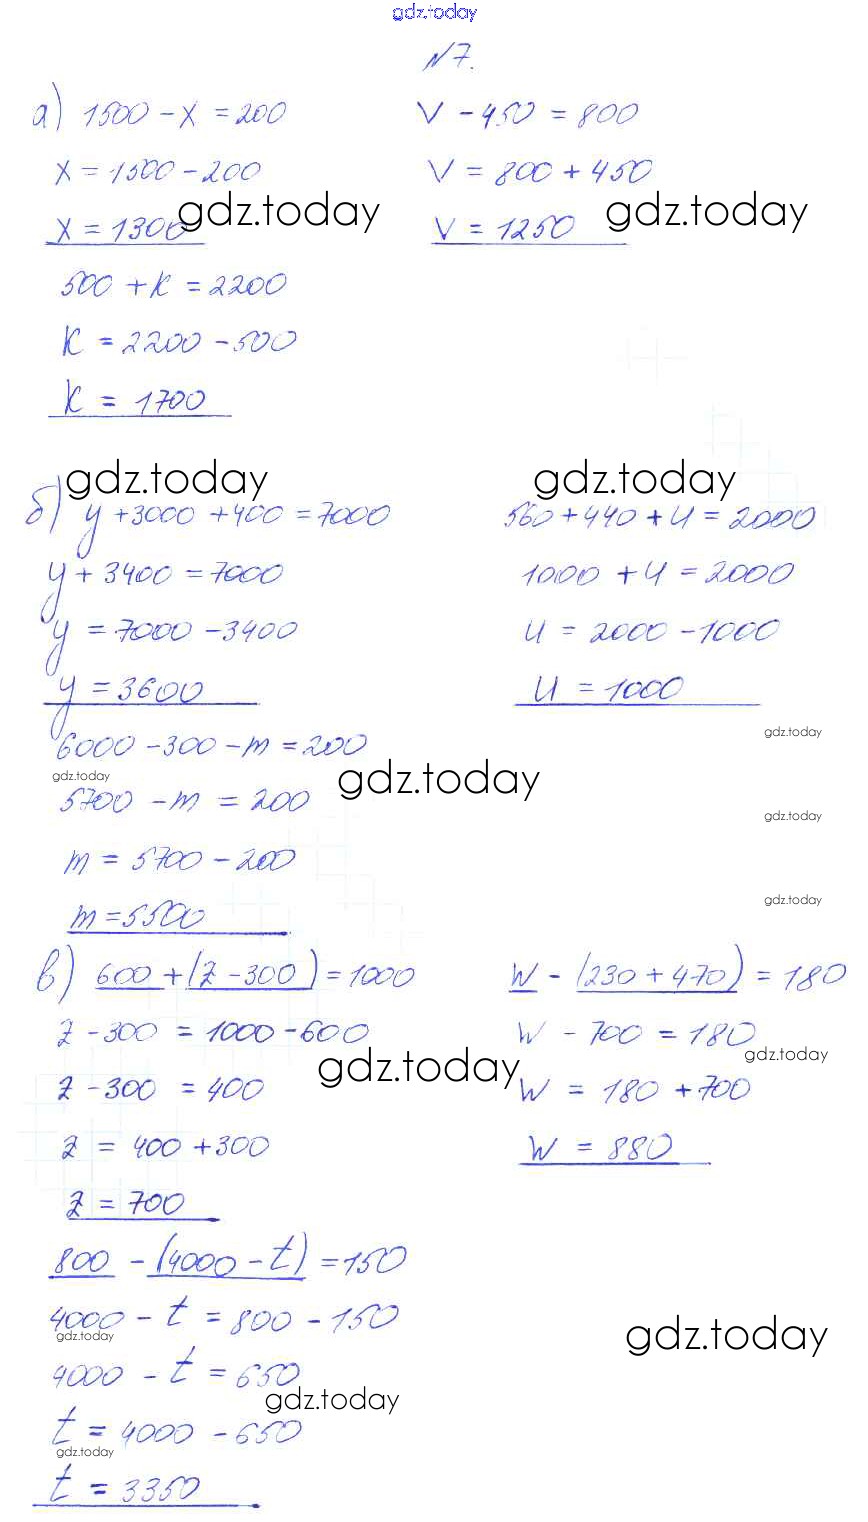 gdz.today
№7.
а) 1500 - x = 200
x = 1500 - 200
x = 1300
500 + k = 2200
k = 2200 - 500
k = 1700
v - 450 = 800
v = 800 + 450
v = 1250
gdz.today
gdz.today
gdz.today
gdz.today
б) y + 3000 + 400 = 7000
y + 3400 = 7000
y = 7000 - 3400
y = 3600
6000 - 300 - m = 200
gdz.today
5700 - m = 200
m = 5700 - 200
m = 5500
560 + 440 + u = 2000
1000 + u = 2000
u = 2000 - 1000
u = 1000
gdz.today
gdz.today
gdz.today
gdz.today
в) 600 + (z - 300) = 1000
z - 300 = 1000 - 600
z - 300 = 400
z = 400 + 300
z = 700
800 - (4000 - t) = 150
4000 - t = 800 - 150
gdz.today
4000 - t = 650
t = 4000 - 650
gdz.today
t = 3350
w - (230 + 470) = 180
w - 700 = 180
gdz.today
w = 180 + 700
w = 880
gdz.today
gdz.today
gdz.today